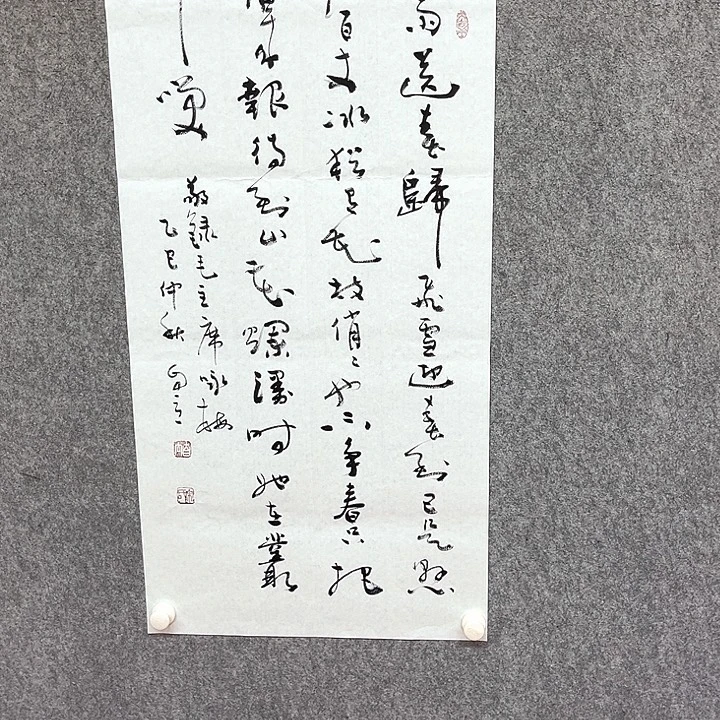 雨送春歸飛雪迎春到已是懸
百丈冰猶有花枝俏〻也不爭春只把
來報待到山花爛漫時她在叢
敬錄毛主席咏梅
乙巳仲秋